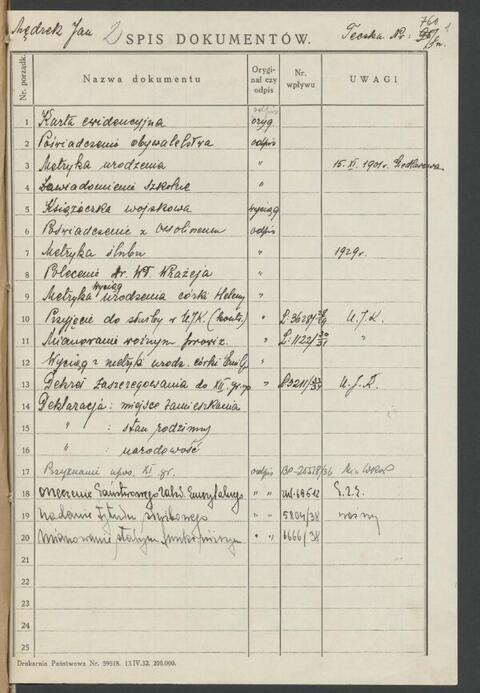 Mędrek Jan 2 SPIS DOKUMENTÓW. Teczka Nr: 760
Nr. porządk. Nazwa dokumentu Orygi- nał czy odpis Nr. wpływu UWAGI
odpis
1 Karta ewidencyjna oryg
2 Poświadczenie obywatelstwa odpis
3 Metryka urodzenia " 15. XI. 1901r.
4 Zawiadomienie szkolne "
5 Książeczka wojskowa wyciąg
6 Poświadczenie z Ossolineum odpis
7 Metryka ślubu " 1929r.
8 Polecenie dr. Wł. "
9 Metryka wyciąg urodzenia córki Heleny "
10 Przyjęcie do służby w UJK. (kontr.) " L: 3628/29 U.J.K.
11 Mianowanie woźnym prowiz. " L: 1122/31 "
12 Wyciąg z metryki urodz. córki "
13 Dekret zaszeregowania do XII. gr. " 3211/34
14 Deklaracja: miejsce zamieszkania
15 " : stan rodzinny
16 " : narodowość
17 Przyznanie upos. XI gr. odpis BO-20378/36
18 Państwowego Zakł. Emerytalnego " "
19 nadanie tytułu służbowego " " 5804/38 woźny
20 Mianowanie stałym " " 6666/38
21
22
23
24
25
Drukarnia Państwowa Nr. 59518. 13.IV.32. 200.000.